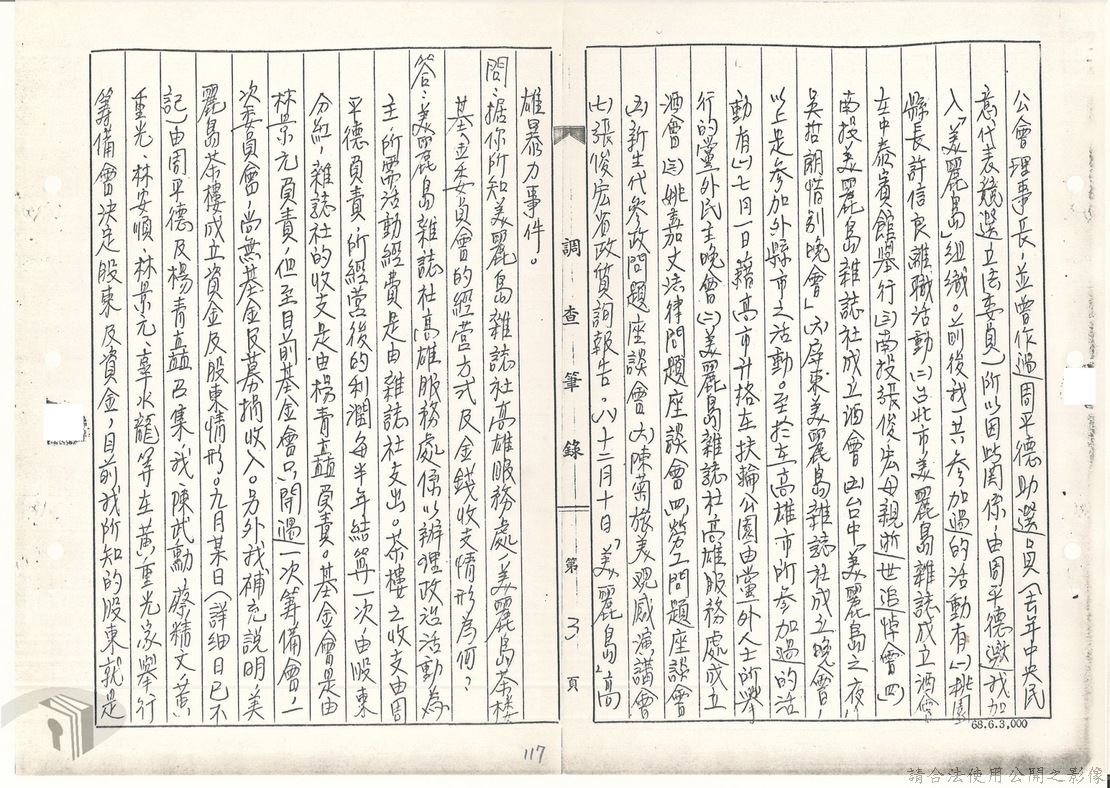 公會理事長，並曾作過周平德助選員（去年中央民
意代表競選立法委員）所以因此関係，由周平德邀我加
入「美麗島」組織。前後我共參加過的活動有㈠桃園
縣長許信良離職活動㈡台北市美麗島雜誌成立酒會
在中泰賓館舉行㈢南投張俊宏母親逝世追悼會㈣
南投美麗島雜誌社成立酒會㈤台中「美麗島之夜」
吳哲朗惜別晚會」㈥屏東美麗島雜誌社成立晚會，
以上是參加外縣市之活動。至於在高雄市所參加過的活
動有㈠七月一日藉高市升格在扶輪公園由黨外人士所舉
行的黨外民主晚會㈡美麗島雜誌社高雄服務處成立
酒會㈢姚嘉文法律問題座談會㈣勞工問題座談會
㈤新生代參政問題座談會㈥陳菊旅美观感演講會
㈦張俊宏省政質詢報告。㈧十二月十日「美麗島」高
調查筆錄
第3頁
68.6.3,000
雄暴力事件。
問：据你所知美麗島雜誌社高雄服務處、美麗島茶樓
基金委員會的經营方式及金錢收支情形為何？
答：美麗島雜誌社高雄服務處係以辦理政治活動為
主，所需活動經費是由雜誌社支出。茶樓之收支由周
平德負責，所經营後的利潤每半年結算一次由股東
分紅，雜誌社的收支是由楊青矗負責。基金會是由
林景元負責，但至目前基金會只開過一次籌備會，一
次委員會，尚無基金及募捐收入。另外我補充說明美
麗島茶樓成立資金及股東情形。九月某日（詳細日已不
記）由周平德及楊青矗召集，我、陳武勳、蔡精文、黃
重光、林安順、林景元、辜水龍等在黃重光家舉行
籌備會決定股東及資金，目前我所知的股東就是
117
請合法使用公開之影像